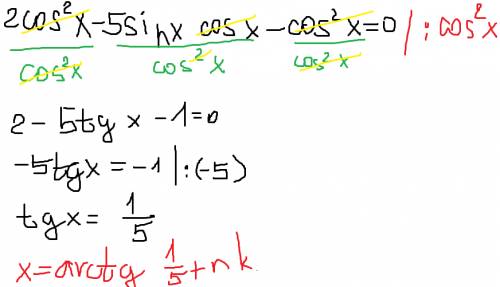 2cos²x-5sinx cosx-cos²x=0 | :cos²x
cos²x cos²x cos²x
2-5tgx-1=0
-5tgx=-1 |:(-5)
tgx= 1/5
x=arctg 1/5+nk